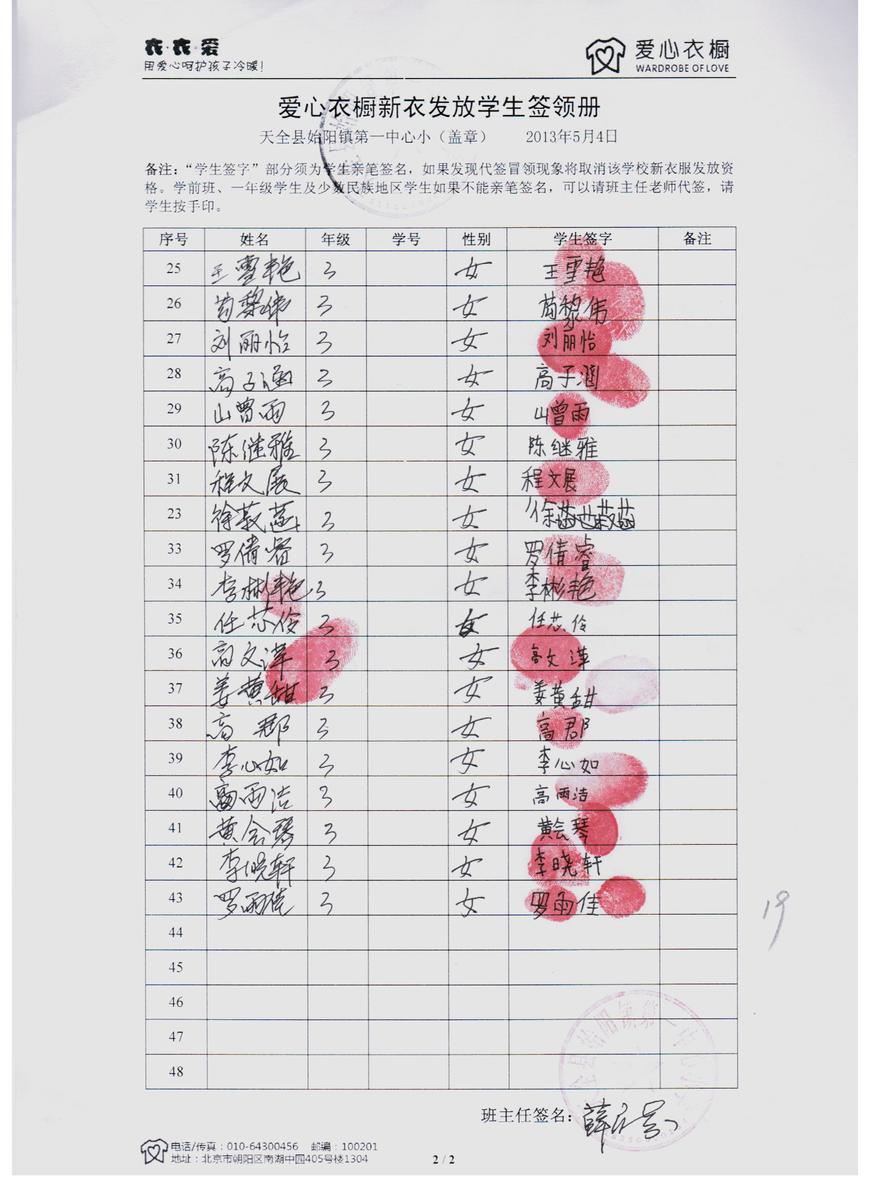 衣·衣·爱
用爱心呵护孩子冷暖!
爱心衣橱
WARDROBE OF LOVE
爱心衣橱新衣发放学生签领册
天全县始阳镇第一中心小(盖章) 2013年5月4日
备注:“学生签字”部分须为学生亲笔签名,如果发现代签冒领现象将取消该学校新衣服发放资
格。学前班、一年级学生及少数民族地区学生如果不能亲笔签名,可以请班主任老师代签,请
学生按手印。
序号 姓名 年级 学号 性别 学生签字 备注
25 王雪艳 3 女 王雪艳
26 苟黎伟 3 女 苟黎伟
27 刘丽怡 3 女 刘丽怡
28 高子涵 3 女 高子涵
29 山曾雨 3 女 山曾雨
30 陈继雅 3 女 陈继雅
31 程文展 3 女 程文展
23 徐 3 女 徐
33 罗倩睿 3 女 罗倩睿
34 李彬艳 3 女 李彬艳
35 任芯伶 3 女 任芯伶
36 高文 3 女 高文
37 姜黄甜 3 女 姜黄甜
38 高郡 3 女 高郡
39 李心如 3 女 李心如
40 雨洁 3 女 高雨洁
41 黄会琴 3 女 黄会琴
42 李晓轩 3 女 李晓轩
43 罗雨佳 3 女 罗雨佳
19
44
45
46
47
48
班主任签名:薛
电话/传真:010-64300456 邮编:100201
地址:北京市朝阳区南湖中园405号楼1304
2 / 2